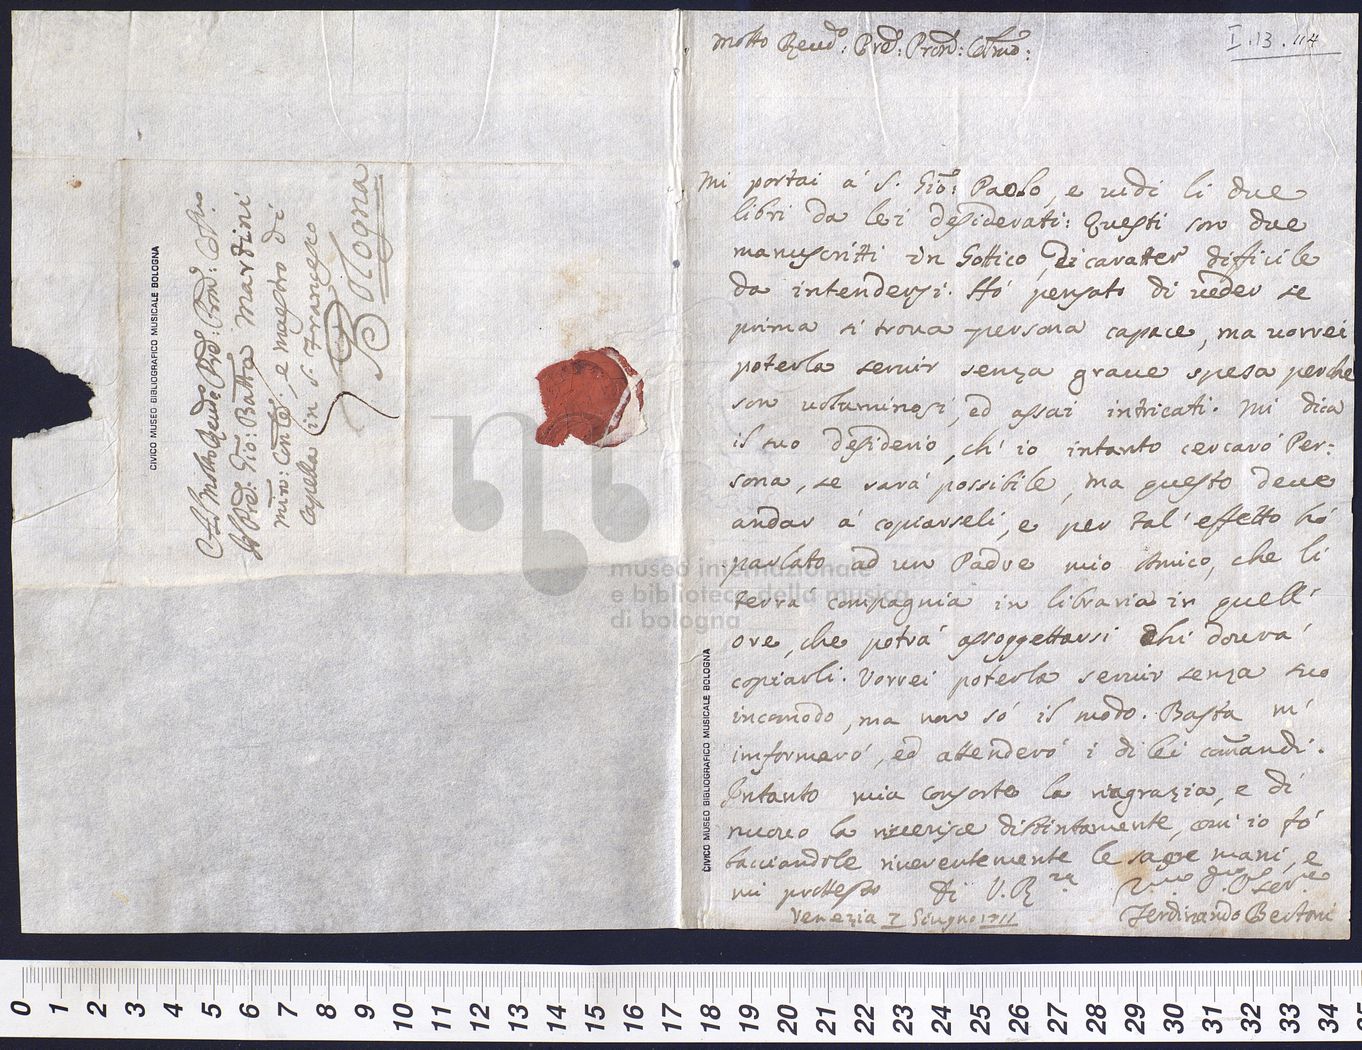 Al Molto Revdo: Pre: Pron: Colmo:
Il Pre: Gio: Batta Martini
Min: Conle: e Maestro di
Capella in S. Francesco
Bologna
CIVICO MUSEO BIBLIOGRAFICO MUSICALE BOLOGNA
museo internazionale
e biblioteca della musica
di bologna
I.13.114
Molto Revdo: Pre: Pron: Colmo:
Mi portai á S. Gio: Paolo, e vidi li due
libri da lei desiderati: Questi son due
manuscritti in Gottico, di carater difficile
da intendersi. Hó pensato di veder se
prima si trova persona capace, ma vorrei
poterla servir senza grave spesa perche
son voluminosi, ed assai intricati. Mi dica
il suo desiderio, ch' io intanto cercaró Per:
sona, se sará possibile, ma questo deve
andar á copiarseli, e per tal' effetto hó
parlato ad un Padre mio Amico, che li
terrá compagnia in libraria in quell'
ore, che potrá assoggettarsi chi dovrá
copiarli. Vorrei poterla servir senza suo
incomodo, ma non só il modo. Basta m'
informeró, ed attenderó i di lei comandi.
Intanto mia Consorte la riagrazia, e di
nuovo la riverisce distintamente, come io fó
bacciandole riverentemente le sagre mani, e
mi protesto di V. R.za
Ferdinando Bertoni
Venezia 7 Giugno
CIVICO MUSEO BIBLIOGRAFICO MUSICALE BOLOGNA
0 1 2 3 4 5 6 7 8 9 10 11 12 13 14 15 16 17 18 19 20 21 22 23 24 25 26 27 28 29 30 31 32 33 34